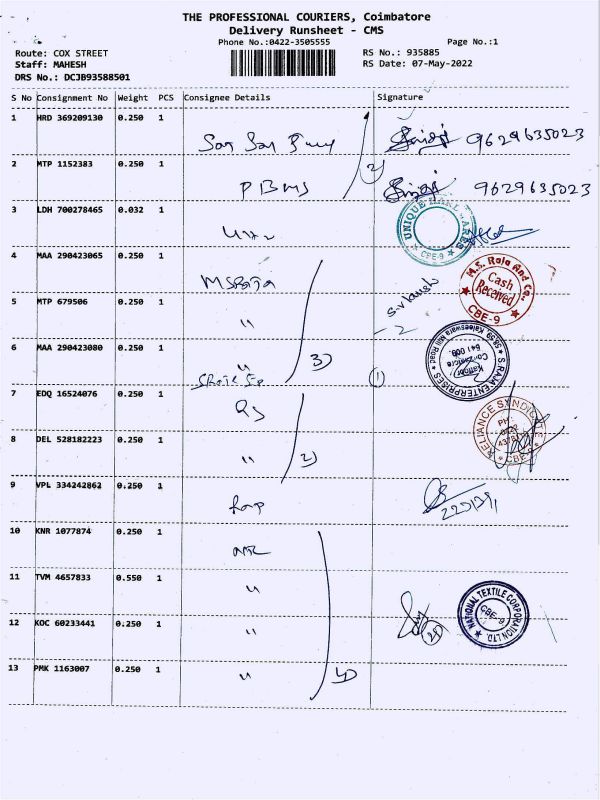 THE PROFESSIONAL COURIERS, Coimbatore
Delivery Runsheet - CMS
Phone No.:0422-3505555
Page No.:1
Route: COX STREET
RS No.: 935885
Staff: MAHESH
RS Date: 07-May-2022
DRS No.: DCJB93588501
S No Consignment No Weight PCS Consignee Details Signature
1 HRD 369209130 0.250 1
9629635023
2 MTP 1152383 0.250 1 PBMS 2) 9629635023
3 LDH 700278465 0.032 1
UNIQUE
CBE-9
4 MAA 290423065 0.250 1 MSRaja
M.S. Raja And Co.,
Cash
Received
CBE-9
5 MTP 679506 0.250 1 "
2
6 MAA 290423080 0.250 1 " 3) 1
S RAJA ENTERPRISES
56-59, Kaleeswara Mill Road
Kattoor
Coimbatore
641 009
7 EDQ 16524076 0.250 1 RS
RELIANCE SYNDICATE
PH:
CBE-9
8 DEL 528182223 0.250 1 " 2)
9 VPL 334242862 0.250 1
10 KNR 1077874 0.250 1
11 TVM 4657833 0.550 1 "
NATIONAL TEXTILE CORPORATION LTD.
CBE-9
12 KOC 60233441 0.250 1 "
13 PMK 1163007 0.250 1 " 4)